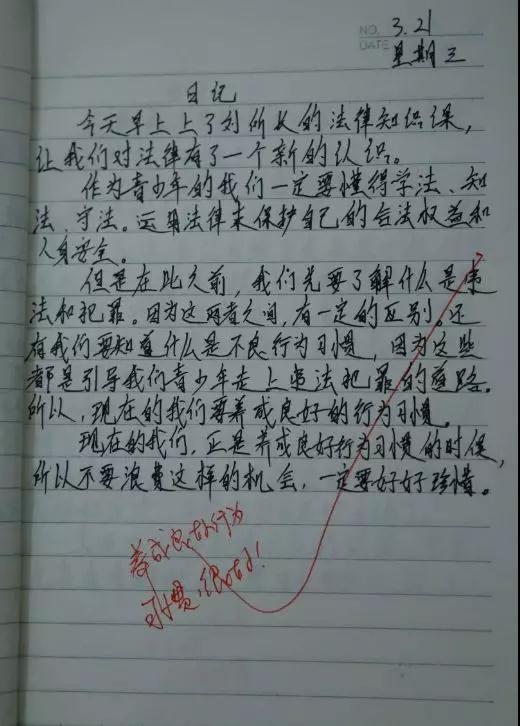 NO. 3.21
DATE 星期三
日记
今天早上上了刘所长的法律知识课，
让我们对法律有了一个新的认识。
作为青少年的我们一定要懂得学法、知
法、守法。运用法律来保护自己的合法权益和
人身安全。
但是在此之前，我们先要了解什么是违
法和犯罪。因为这两者之间，有一定的区别。还
有我们要知道什么是不良行为习惯，因为这些
都是引导我们青少年走上违法犯罪的道路。
所以，现在的我们要养成良好的行为习惯。
现在的我们，正是养成良好行为习惯的时候，
所以不要浪费这样的机会，一定要好好珍惜。
养成良好行为
习惯，很好！